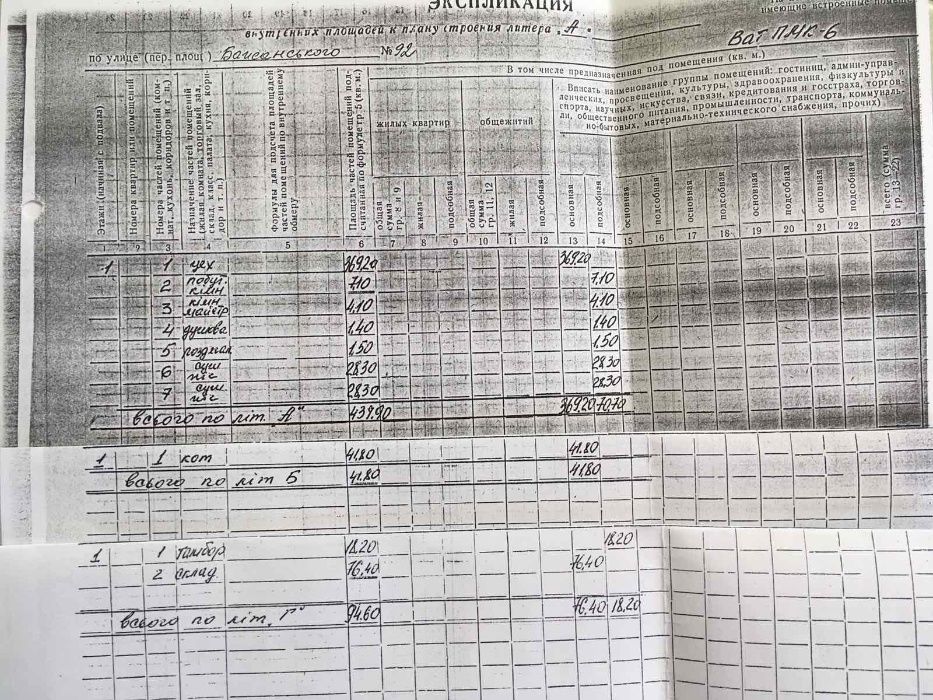 ЭКСПЛИКАЦИЯ
имеющие встроенные помещ
внутренних площадей к плану строения литера „А“
Ват ПМК-6
по улице (пер. площ.) №92
В том числе предназначенная под помещения (кв. м.)
Этажи (начиная с подвала)
Номера квартир или помещений
Номера частей помещений (комнат, кухонь, коридоров и т. п.)
Назначение частей помещений (жилая комната, торговый зал, склад, класс, палата, кухня, коридор и т. п.)
Формулы для подсчета площадей частей помещений по внутреннему обмеру
Площадь частей помещений подсчитанная по формуле гр. 5 (кв. м.)
жилых квартир
общежитий
Вписать наименование группы помещений: гостиниц, админ-управленческих, просвещения, культуры, здравоохранения, физкультуры и спорта, научных, искусства, связи, кредитования и госстраха, торговли, общественного питания, промышленности, транспорта, коммунально-бытовых, материально-технического снабжения, прочих)
общая сумма гр. 8 и 9
жилая
подсобная
общая сумма гр. 11, 12
жилая
подсобная
основная
подсобная
основная
подсобная
основная
подсобная
основная
подсобная
основная
подсобная
всего (сумма гр. 13—22)
1 2 3 4 5 6 7 8 9 10 11 12 13 14 15 16 17 18 19 20 21 22 23
1 1 цех 369.20 369.20
2 побут. кімн 7.10 7.10
3 кімн майстр 4.10 4.10
4 душква 1.40 1.40
5 роздяг 1.50 1.50
6 суш 28.30 28.30
7 суш 28.30 28.30
всього по літ. А" 439.90 369.20 70.70
1 1 кот 41.80 41.80
всього по літ Б 41.80 41.80
1 1 тамбор 18.20 18.20
2 склад 76.40 76.40
всього по літ. „Г" 94.60 76.40 18.20